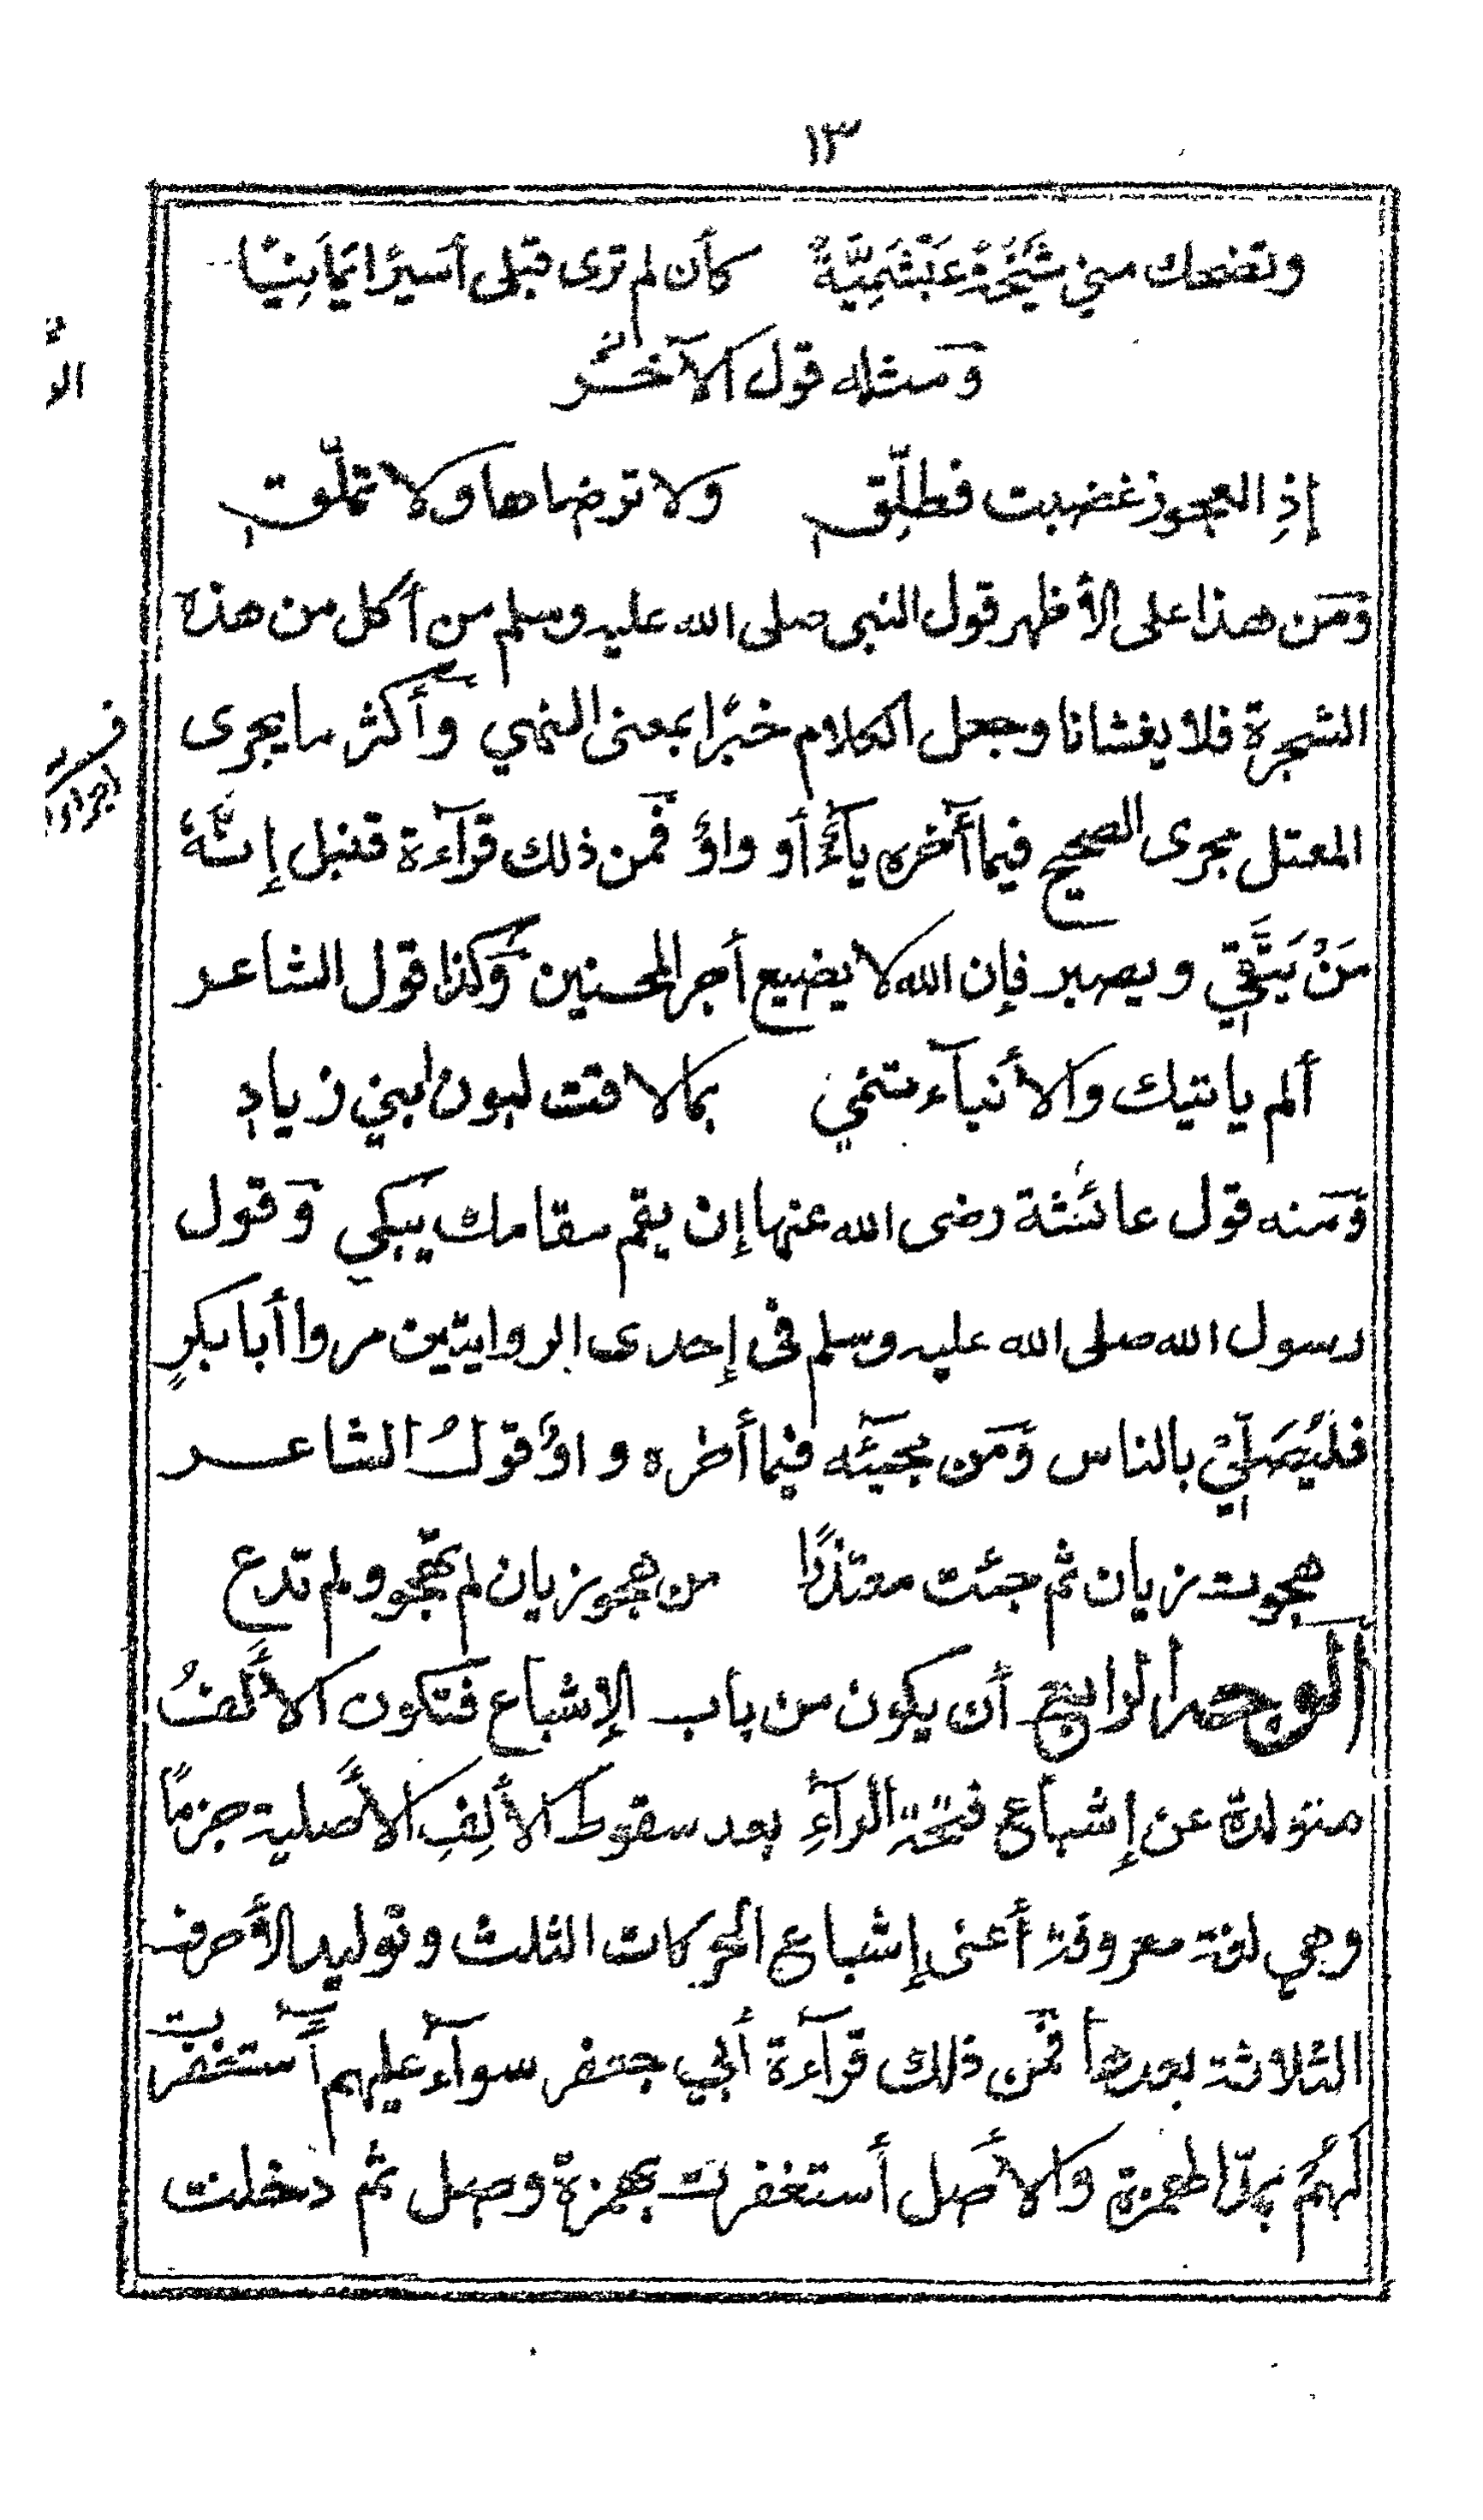 ١٣
وتضحك مني شَيْخَةٌ عَبْشَمِيَّةٌ كأن لم ترى قبلي أسيرًا يَمَانِيًّا
ومثله قول الآخر
إذِ العجوز غضبت فطلِّقِ ولا ترضاها ولا تملّقِ
ومن هذا على الأظهر قول النبي صلى الله عليه وسلم من أكل من هذه
الشجرة فلا يغشانا وجعل الكلام خبرًا بمعنى النهي وأكثر ما يجرى
المعتل مجرى الصحيح فيما آخره يآءٌ أو واوٌ فمن ذلك قرآءة قنبل إنَّهُ
مَنْ يَتَّقِي ويصبر فإن الله لا يضيع أجر المحسنين وكذا قول الشاعر
ألم يأتيك والأنبآء تنمي بما لاقت لبون بني زيادِ
ومنه قول عائشة رضى الله عنها إن يقم مقامك يبكي وقول
رسول الله صلى الله عليه وسلم في إحدى الروايتين مروا أبا بكرٍ
فليُصَلِّيْ بالناس ومن مجيئه فيما أخره واوٌ قولُ الشاعر
هجوت زبان ثم جئت معتذرًا من هجو زبان لم تهجو ولم تدع
الوجه الرابع أن يكون من باب الإشباع فتكون الألفُ
متولدة عن إشباع فتحة الرآءِ بعد سقوط الألِفِ الأصلية جزمًا
وهي لغة معروفة أعنى إشباع الحركات الثلث وتوليد الأحرف
الثلاثة بعدها فمن ذلك قرآءة أبي جعفر سوآء عليهم آستغفرت
لهُم بمدّ الهمزة والأصل أستغفرت بهمزة وصل ثم دخلت